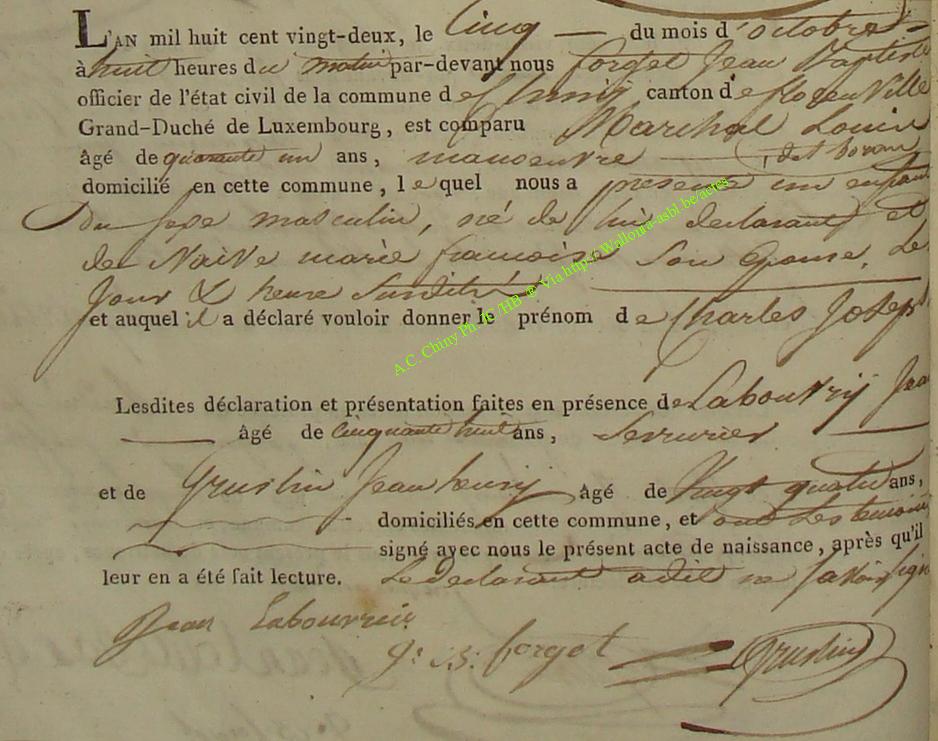 L'AN mil huit cent vingt-deux, le Cinq — du mois d'octobre
à huit heures du matin par-devant nous forget Jean Baptiste
officier de l'état civil de la commune de Chiny canton de florenville
Grand-Duché de Luxembourg, est comparu Marchal Louis
âgé de quarante un ans, manoeuvre
domicilié en cette commune, lequel nous a presenté un enfant
Du sexe masculin, né de lui declarant et
de Naive marie francoise Son Epouse, Le
Jour & heure Susdite
et auquel il a déclaré vouloir donner le prénom de Charles Joseph
Lesdites déclaration et présentation faites en présence de Labourry Jean
âgé de Cinquante huit ans, Serrurier
et de Grustin Jean henry âgé de Vingt quatre ans,
domiciliés en cette commune, et ont Les temoins
signé avec nous le présent acte de naissance, après qu'il
leur en a été fait lecture. Le Declarant a dit ne savoir signé
Jean Labourrie
J: B: forget Grustin
A.C. Chiny Ph. /HB @ Via http://Wallonia-asbl.be/actes